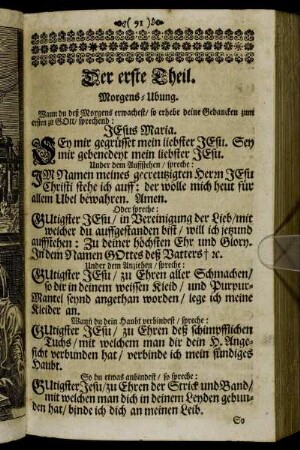 ( 91 )
Der erste Theil.
Morgens-Ubung.
Wann du des Morgens erwachest / so erhebe deine Gedancken zum
ersten zu GOtt / sprechend :
JEsus Maria.
SEy mit gegrüsset mein liebster JEsu. Sey
mir gebenedeyt mein liebster JEsu.
Under dem Aufstehen / spreche :
IM Namen meines gecreutzigten Herrn JEsu
Christi stehe ich auff : der wolle mich heut für
allem Ubel bewahren. Amen.
Oder spreche :
GUtigster JEsu / in Vereinigung der Lieb / mit
welcher du auffgestanden bist / will ich jetzund
auffstehen : Zu deiner höchsten Ehr und Glory.
In dem Namen GOttes deß Vatters † ꝛc.
Under dem Anziehen / spreche :
GUtigster JEsu / zu Ehren aller Schmachen /
so dir in deinem weissen Kleid / und Purpur-
Mantel seynd angethan worden / lege ich meine
Kleider an.
Wann du dein Haubt verbindest / spreche :
GUtigster JEsu / zu Ehren deß schimpfflichen
Tuchs / mit welchem man dir dein H. Ange-
sicht verbunden hat / verbinde ich mein sündiges
Haubt.
So du etwas anbindest / so spreche :
GUtigster Jesu / zu Ehren der Strick und Band /
mit welchen man dich in deinem Leyden gebun-
den hat / binde ich dich an meinen Leib.
So